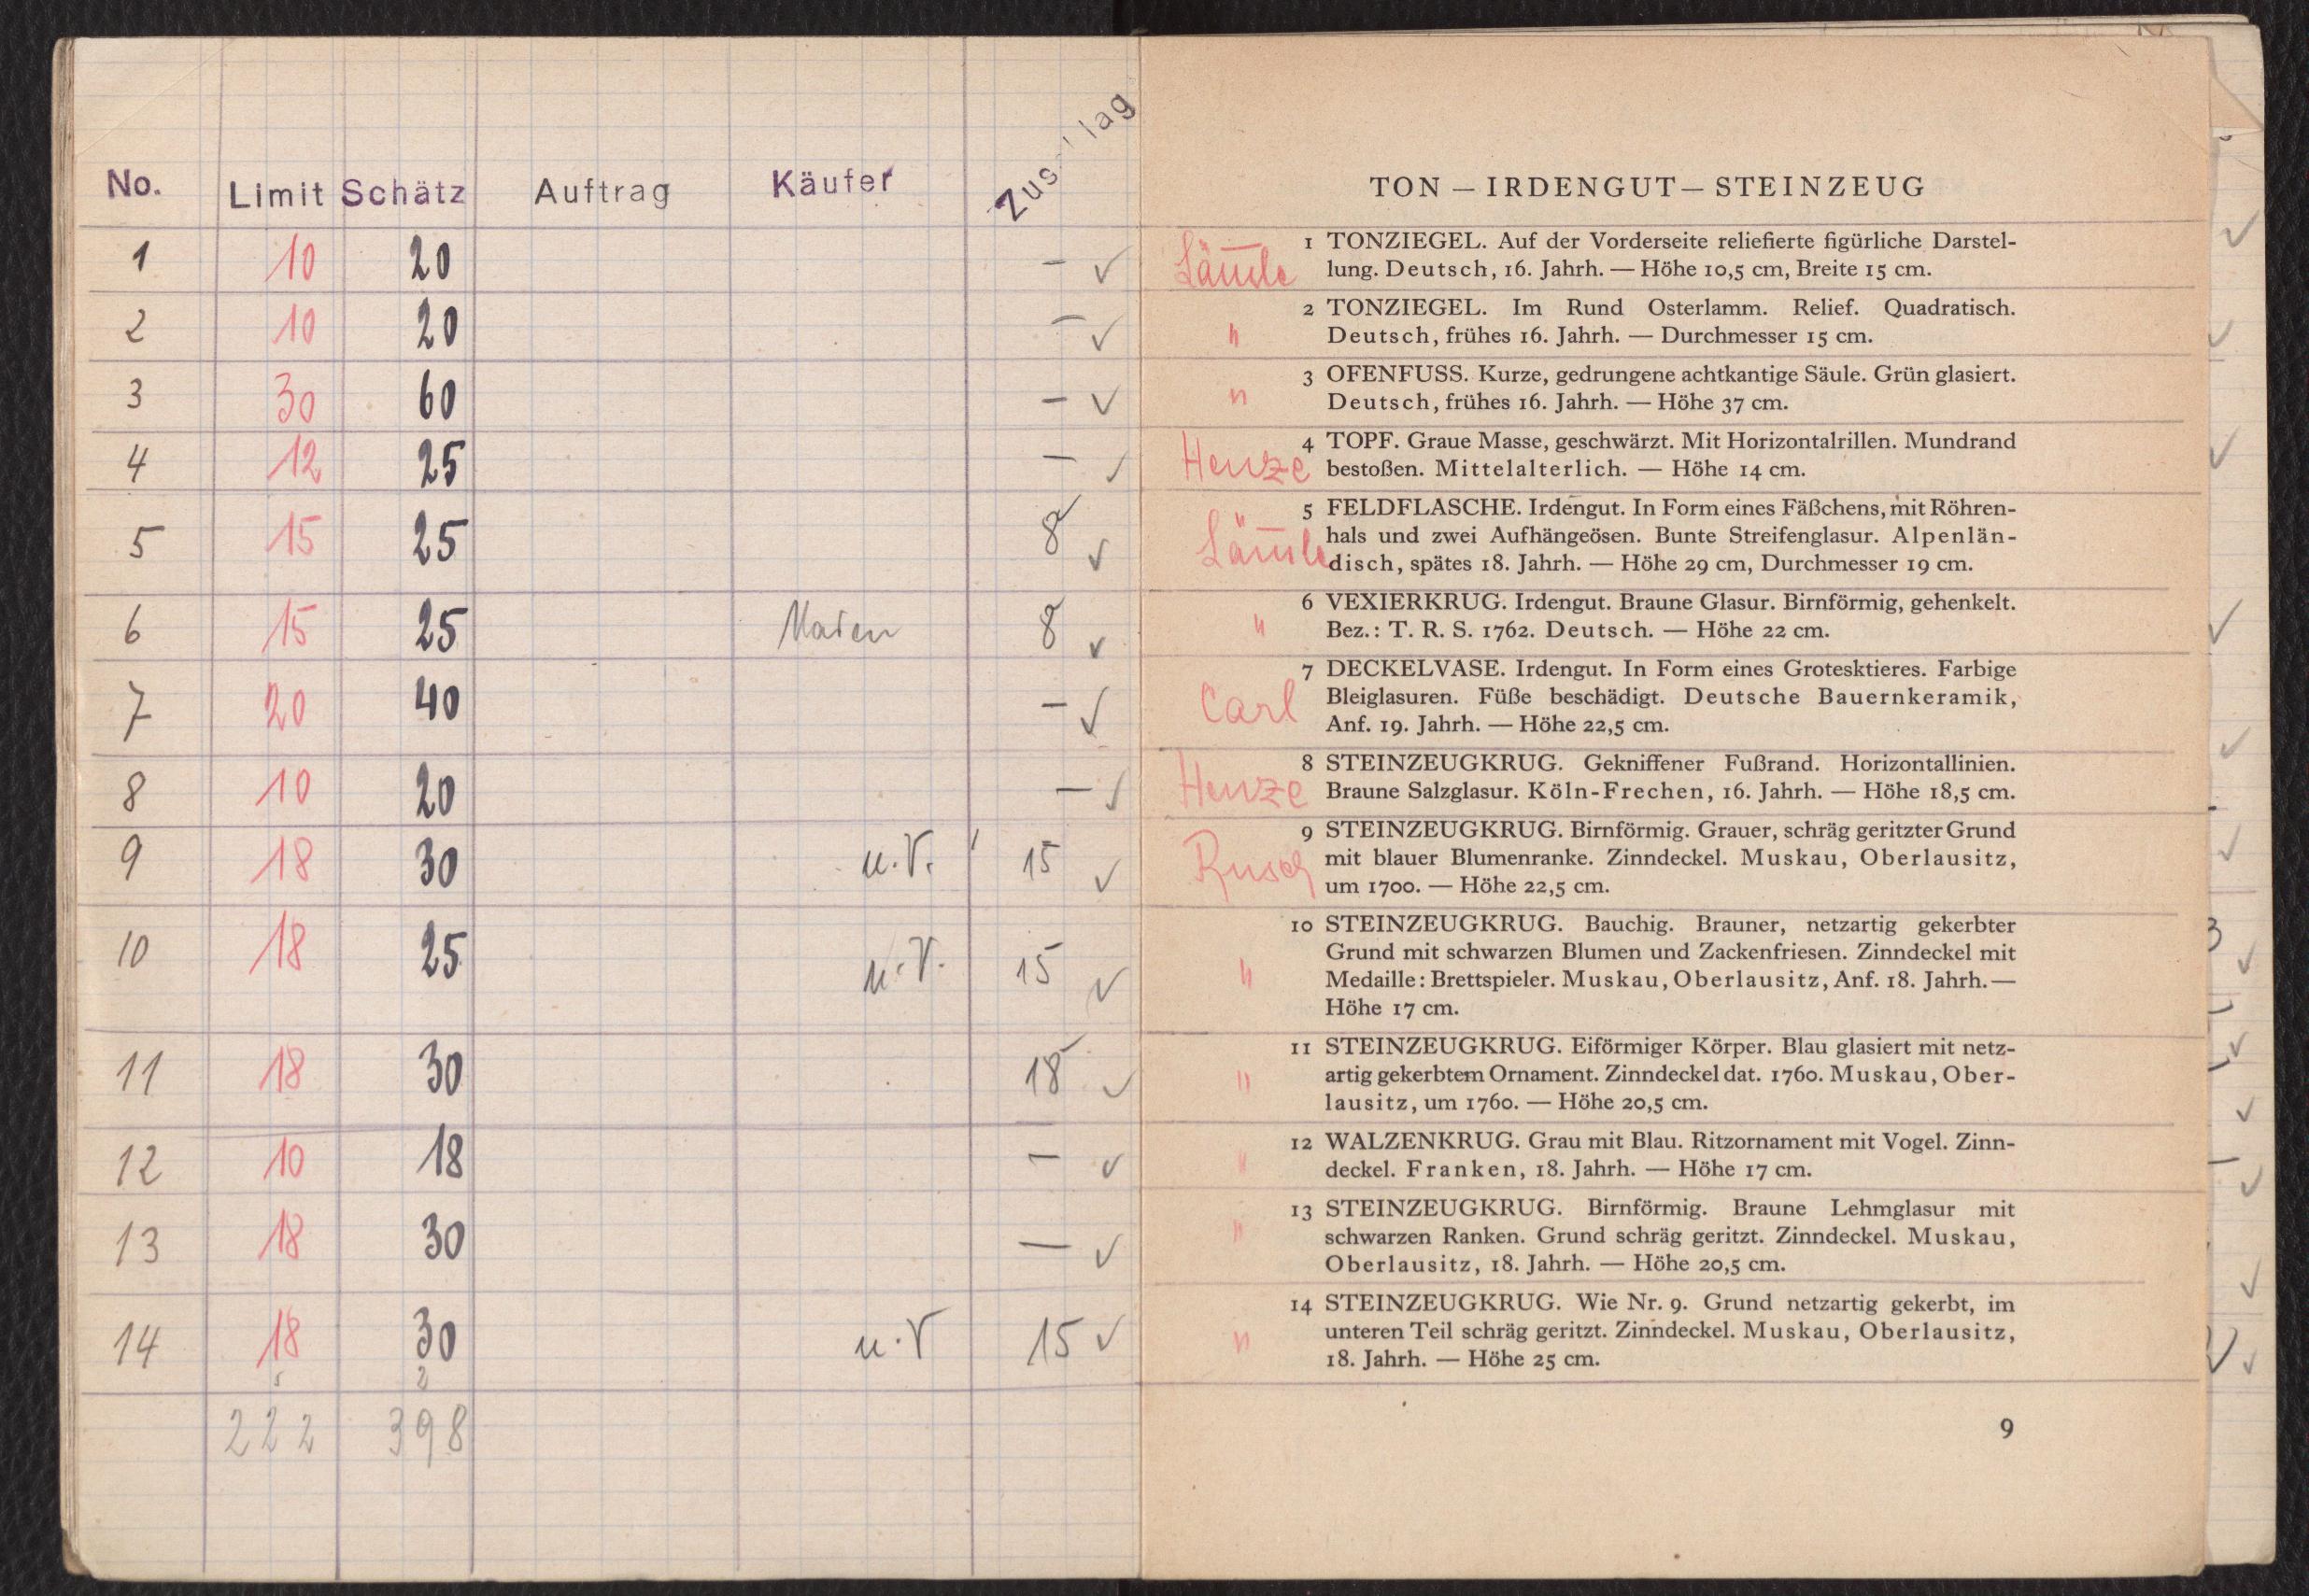 No. Limit Schätz Auftrag Käufer
1 10 20 –
2 10 20 –
3 30 60 –
4 12 25 –
5 15 25 8
6 15 25 8
7 20 40 –
8 10 20 –
9 18 30 u.V. 15
10 18 25 u.V. 15
11 18 30 18
12 10 18 –
13 18 30 –
14 18 30 u.V 15
222 398
TON — IRDENGUT — STEINZEUG
1 TONZIEGEL. Auf der Vorderseite reliefierte figürliche Darstel-
lung. Deutsch, 16. Jahrh. — Höhe 10,5 cm, Breite 15 cm.
2 TONZIEGEL. Im Rund Osterlamm. Relief. Quadratisch.
" Deutsch, frühes 16. Jahrh. — Durchmesser 15 cm.
3 OFENFUSS. Kurze, gedrungene achtkantige Säule. Grün glasiert.
" Deutsch, frühes 16. Jahrh. — Höhe 37 cm.
4 TOPF. Graue Masse, geschwärzt. Mit Horizontalrillen. Mundrand
Henze bestoßen. Mittelalterlich. — Höhe 14 cm.
5 FELDFLASCHE. Irdengut. In Form eines Fäßchens, mit Röhren-
hals und zwei Aufhängeösen. Bunte Streifenglasur. Alpenlän-
disch, spätes 18. Jahrh. — Höhe 29 cm, Durchmesser 19 cm.
6 VEXIERKRUG. Irdengut. Braune Glasur. Birnförmig, gehenkelt.
" Bez.: T. R. S. 1762. Deutsch. — Höhe 22 cm.
7 DECKELVASE. Irdengut. In Form eines Grotesktieres. Farbige
Carl Bleiglasuren. Füße beschädigt. Deutsche Bauernkeramik,
Anf. 19. Jahrh. — Höhe 22,5 cm.
8 STEINZEUGKRUG. Gekniffener Fußrand. Horizontallinien.
Henze Braune Salzglasur. Köln-Frechen, 16. Jahrh. — Höhe 18,5 cm.
9 STEINZEUGKRUG. Birnförmig. Grauer, schräg geritzter Grund
Rusch mit blauer Blumenranke. Zinndeckel. Muskau, Oberlausitz,
um 1700. — Höhe 22,5 cm.
10 STEINZEUGKRUG. Bauchig. Brauner, netzartig gekerbter
Grund mit schwarzen Blumen und Zackenfriesen. Zinndeckel mit
" Medaille: Brettspieler. Muskau, Oberlausitz, Anf. 18. Jahrh. —
Höhe 17 cm.
11 STEINZEUGKRUG. Eiförmiger Körper. Blau glasiert mit netz-
" artig gekerbtem Ornament. Zinndeckel dat. 1760. Muskau, Ober-
lausitz, um 1760. — Höhe 20,5 cm.
12 WALZENKRUG. Grau mit Blau. Ritzornament mit Vogel. Zinn-
" deckel. Franken, 18. Jahrh. — Höhe 17 cm.
13 STEINZEUGKRUG. Birnförmig. Braune Lehmglasur mit
" schwarzen Ranken. Grund schräg geritzt. Zinndeckel. Muskau,
Oberlausitz, 18. Jahrh. — Höhe 20,5 cm.
14 STEINZEUGKRUG. Wie Nr. 9. Grund netzartig gekerbt, im
" unteren Teil schräg geritzt. Zinndeckel. Muskau, Oberlausitz,
18. Jahrh. — Höhe 25 cm.
9